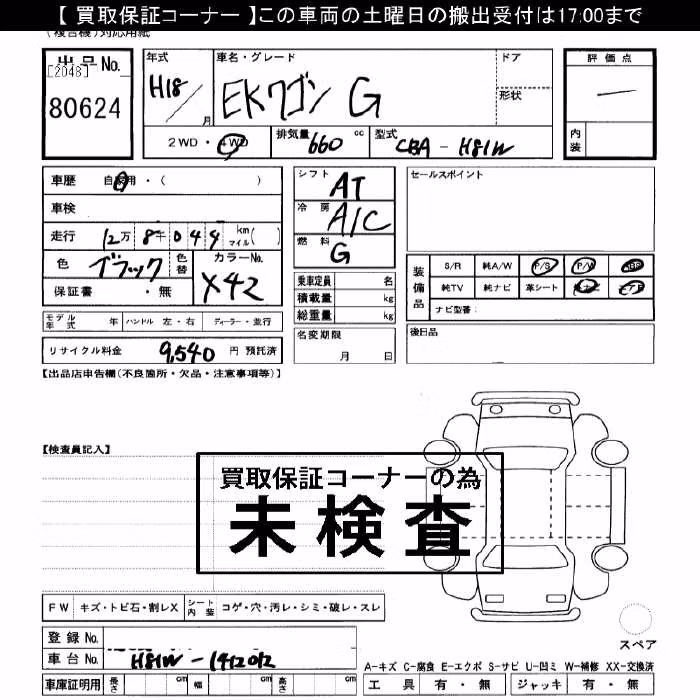 【 買取保証コーナー 】この車両の土曜日の搬出受付は17:00まで
(複合機)対応用紙
出品No.
[2048]
80624
年式
H18
月
車名・グレード
EKワゴン G
ドア
形状
評価点
内装
2WD・4WD
排気量
660 cc
型式
CBA - H81W
車歴 自家用・( )
車検
走行 12万 8千 0 4 4 km マイル( )
色 ブラック 色替 カラーNo.
X42
保証書 ・無
モデル年式 年 ハンドル 左・右 ディーラー・並行
リサイクル料金 9,540 円 預託済
シフト AT
冷房 A/C
燃料 G
乗車定員 名
積載量 kg
総重量 kg
名変期限
月 日
セールスポイント
装備品
S/R 純A/W P/S P/W ABS
純TV 純ナビ 革シート
ナビ型番:
後日品
【出品店申告欄(不良箇所・欠品・注意事項等)】
【検査員記入】
買取保証コーナーの為
未検査
FW キズ・トビ石・割レX シート内装 コゲ・穴・汚レ・シミ・破レ・スレ
登録 No.
車台 No. H81W-1412012
車庫証明用 長さ cm 幅 cm 高さ cm
スペア
A-キズ C-腐食 E-エクボ S-サビ U-凹ミ W-補修 XX-交換済
工具 有・無 ジャッキ 有・無